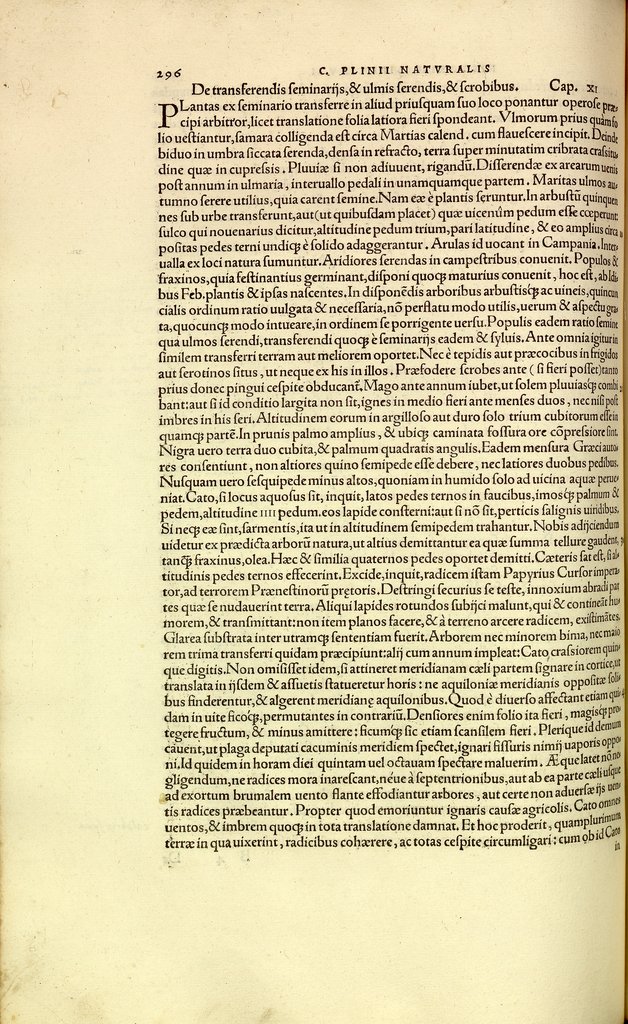 296 C. PLINII NATVRALIS
De transferendis seminarijs,& ulmis serendis,& scrobibus. Cap. XI
PLantas ex seminario transferre in aliud priusquam suo loco ponantur operose præ⸗
cipi arbitror,licet translatione folia latiora fieri spondeant. Vlmorum prius quàm fo
lio uestiantur,samara colligenda est circa Martias calend. cum flauescere incipit. Deinde
biduo in umbra siccata serenda,densa in refracto, terra super minutatim cribrata crassitu
dine quæ in cupressis. Pluuiæ si non adiuuent,rigandũ. Differendæ ex arearum uenis
post annum in ulmaria, interuallo pedali in unamquamque partem. Maritas ulmos au⸗
tumno serere utilius,quia carent semine. Nam eæ è plantis seruntur. In arbustũ quinquen
nes sub urbe transferunt,aut(ut quibusdam placet) quæ uicenũm pedum esse cœperunt:
sulco qui nouenarius dicitur,altitudine pedum trium,pari latitudine, & eo amplius circa
positas pedes terni undiq; è solido adaggerantur. Arulas id uocant in Campania. Inter⸗
ualla ex loci natura sumuntur. Aridiores serendas in campestribus conuenit. Populos &
fraxinos,quia festinantius germinant,disponi quoq; maturius conuenit, hoc est, ab Idi⸗
bus Feb.plantis & ipsas nascentes. In disponẽdis arboribus arbustisq; ac uineis,quincun
cialis ordinum ratio uulgata & necessaria,nõ perflatu modo utilis,uerum & aspectu gra⸗
ta,quocunq; modo intueare,in ordinem se porrigente uersu. Populis eadem ratio semine
qua ulmos serendi,transferendi quoq; è seminarijs eadem & syluis. Ante omnia igitur in
similem transferri terram aut meliorem oportet. Nec è tepidis aut præcocibus in frigidos
aut serotinos situs, ut neque ex his in illos. Præfodere scrobes ante ( si fieri posset) tanto
prius donec pingui cespite obducant. Mago ante annum iubet,ut solem pluuiasq; combi
bant:aut si id conditio largita non sit,ignes in medio fieri ante menses duos, nec nisi post
imbres in his seri. Altitudinem eorum in argilloso aut duro solo trium cubitorum esse in
quamq; partẽ. In prunis palmo amplius, & ubiq; caminata fossura ore cõpressiore sint.
Nigra uero terra duo cubita,& palmum quadratis angulis. Eadem mensura Græci auto
res consentiunt, non altiores quino semipede esse debere, nec latiores duobus pedibus.
Nusquam uero sesquipede minus altos,quoniam in humido solo ad uicina aquæ perue⸗
niat. Cato,si locus aquosus sit, inquit, latos pedes ternos in faucibus,imosq; palmum &
pedem,altitudine IIII pedum.eos lapide consterni:aut si nõ sit,perticis salignis uiridibus.
Si neq; eæ sint,sarmentis,ita ut in altitudinem semipedem trahantur. Nobis adijciendum
uidetur ex prædicta arborũ natura,ut altius demittantur ea quæ summa tellure gaudent,
tanq; fraxinus,olea. Hæc & similia quaternos pedes oportet demitti. Cæteris sat est, si al⸗
titudinis pedes ternos effecerint. Excide,inquit,radicem istam Papyrius Cursor impera⸗
tor,ad terrorem Prænestinorũ prętoris. Destringi securius se teste, innoxium abradi par
tes quæ se nudauerint terra. Aliqui lapides rotundos subijci malunt,qui & contineãt hu⸗
morem,& transmittant:non item planos facere,& à terreno arcere radicem, existimãtes.
Glarea substrata inter utramq; sententiam fuerit. Arborem nec minorem bina, nec maio
rem trima transferri quidam præcipiunt:alij cum annum impleat:Cato,crassiorem quin⸗
que digitis. Non omisisset idem,si attineret meridianam cæli partem signare in cortice,ut
translata in ijsdem & assuetis statueretur horis : ne aquiloniæ meridianis oppositæ soli⸗
bus finderentur,& algerent meridianę aquilonibus. Quod è diuerso affectant etiam qui⸗
dam in uite ficoq;,permutantes in contrariũ. Densiores enim folio ita fieri, magisq; pro⸗
tegere fructum, & minus amittere : ficumq; sic etiam scansilem fieri. Plerique id demum
cauent,ut plaga deputati cacuminis meridiem spectet,ignari fissuris nimij uaporis oppo⸗
ni. Id quidem in horam diei quintam uel octauam spectare maluerim. Æque latet nõ ne⸗
gligendum,ne radices mora inarescant,néue à septentrionibus,aut ab ea parte cæli usque
ad exortum brumalem uento flante effodiantur arbores, aut certe non aduersæ ijs uen⸗
tis radices præbeantur. Propter quod emoriuntur ignaris causæ agricolis. Cato omnes
uentos,& imbrem quoq; in tota translatione damnat. Et hoc proderit, quamplurimum
terræ in qua uixerint, radicibus cohærere, ac totas cespite circumligari: cum ob id Cato
in